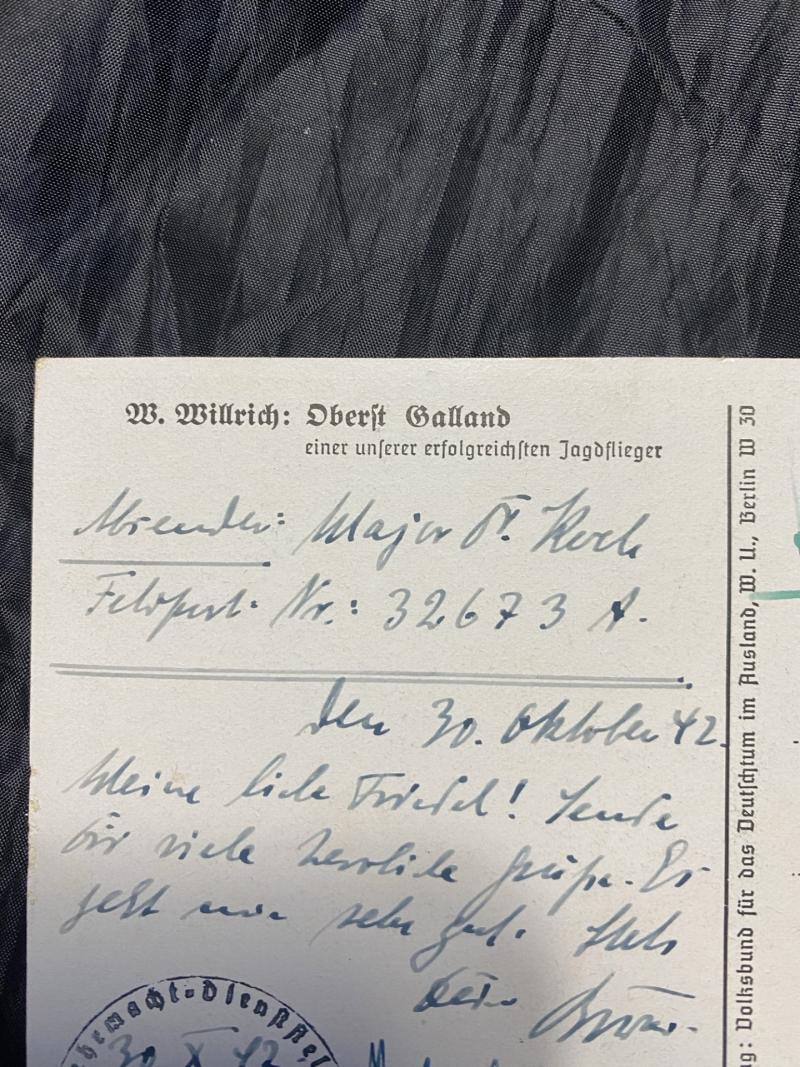 W. Willrich: Oberst Galland
einer unserer erfolgreichsten Jagdflieger
Absender: Major Dr. Koch
Feldpost. Nr.: 32673 A.
Den 30. Oktober 42.
Meine liebe Friedel! Sende
Dir viele herzliche Grüße. Es
geht mir sehr gut. Stets
Dein
Wehrmacht-Dienststel
30 X 42
g: Volksbund für das Deutschtum im Ausland, W. U., Berlin W 30